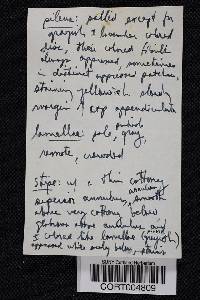 pileus: pallid except for
grayish & lavender colored
disc, these colored fibrils
always appressed, sometimes
in distinct appressed patches,
staining yellowish slowly
margin & exp appendiculate
lamellae: pale, gray,
remote, crowded
stipe: w/ a thin cottony
annulus
superior annulus, smooth
above very cottony below,
above annulus and
colored like lamellae (grayish)
appressed white scaly below, stains
SUNY Cortland Herbarium
CORT004809